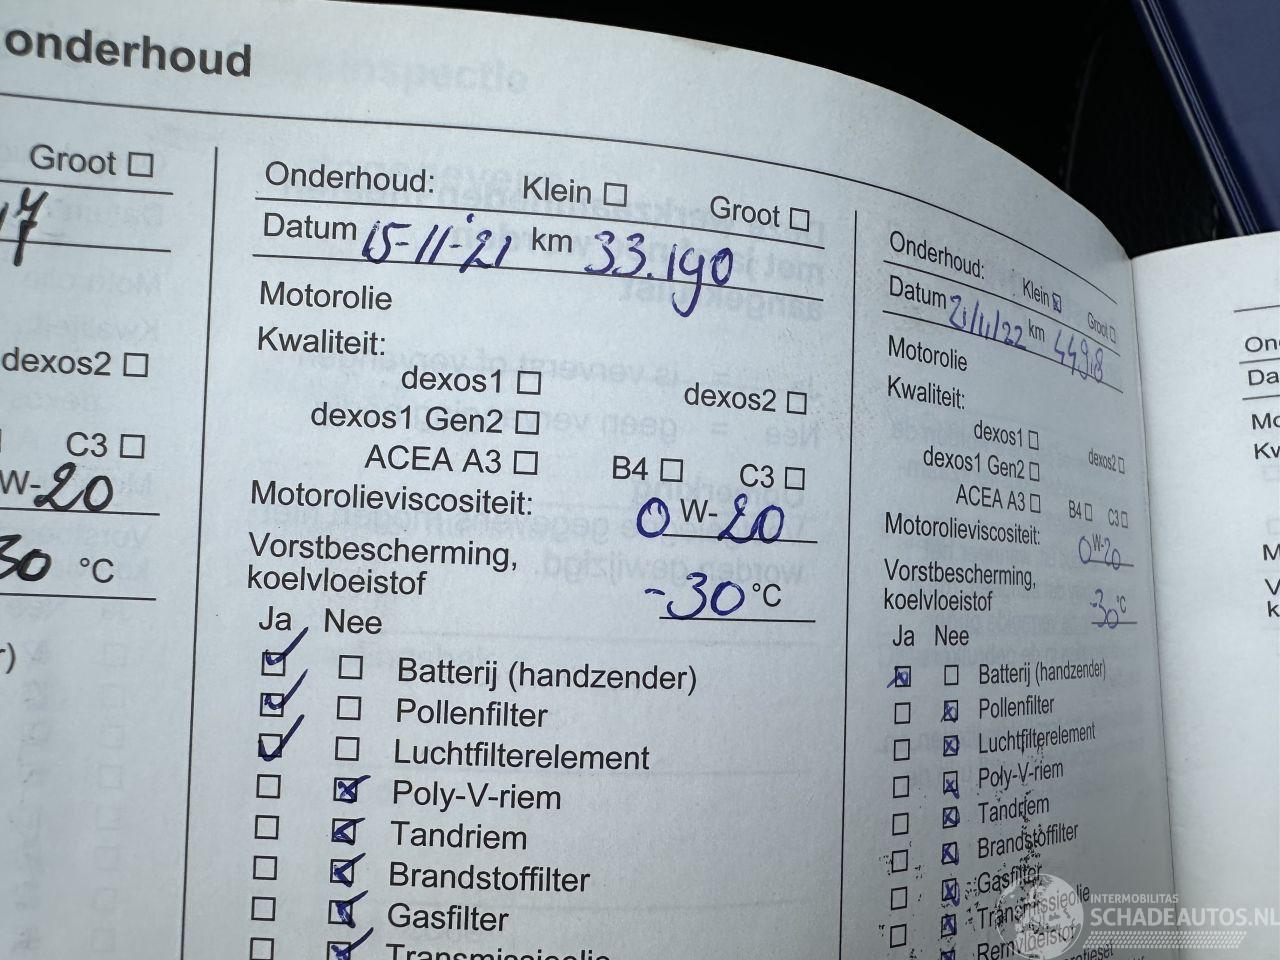 onderhoud
Groot
dexos2
C3
W-20
30 °C
Onderhoud: Klein Groot
Datum 15-11-21 km 33.190
Motorolie
Kwaliteit:
dexos1 dexos2
dexos1 Gen2
ACEA A3 B4 C3
Motorolieviscositeit: 0 W-20
Vorstbescherming,
koelvloeistof -30 °C
Ja Nee
Batterij (handzender)
Pollenfilter
Luchtfilterelement
Poly-V-riem
Tandriem
Brandstoffilter
Gasfilter
Transmissieolie
Onderhoud: Klein Groot
Datum 21/11/22 km 44918
Motorolie
Kwaliteit:
dexos1 dexos2
dexos1 Gen2
ACEA A3 B4 C3
Motorolieviscositeit: 0 W-20
Vorstbescherming,
koelvloeistof -30 °C
Ja Nee
Batterij (handzender)
Pollenfilter
Luchtfilterelement
Poly-V-riem
Tandriem
Brandstoffilter
Gasfilter
Transmissieolie
INTERMOBILITAS
SCHADEAUTOS.NL